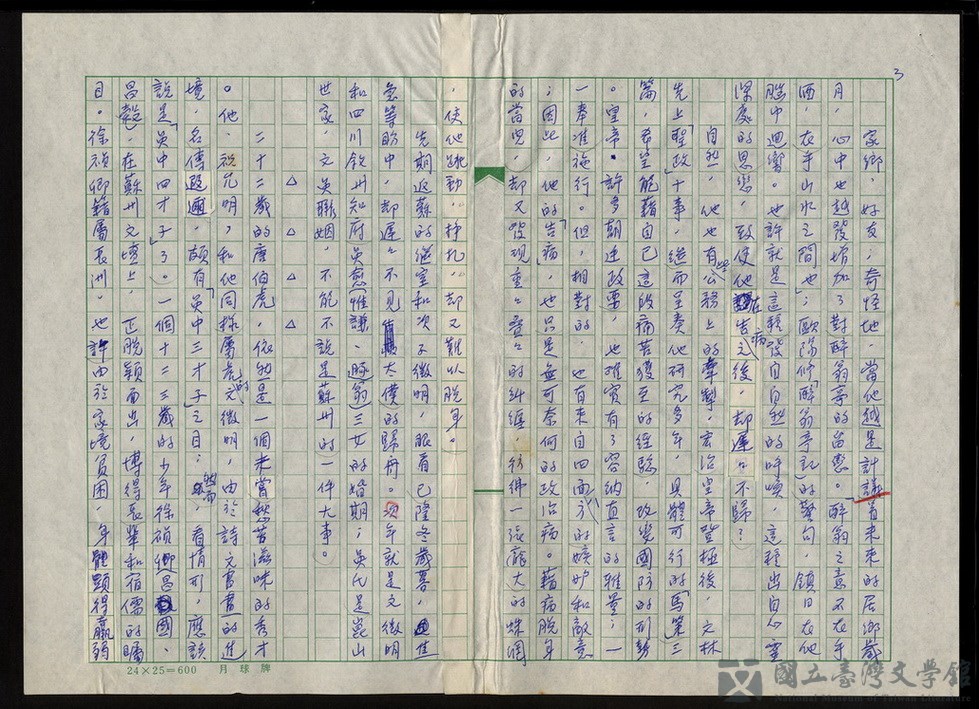 3
家鄉，好友；奇怪地，當他越是計議着未來的居鄉歲
月，心中也越發增加了對醉翁亭的留戀。「醉翁之意不在乎
酒，在乎山水之間也」；歐陽修「醉翁亭記」的警句，鎮日在他
腦中迴響。也許就是這種發自自然的呼喚，這種出自心靈
深處的思戀，致使他在「告病」之後，却遲遲不歸？
自然，他也有些公務上的牽掣，宏治皇帝登極後，文林
先上「聖政」十事，繼而呈奏他研究多年，具體可行的「馬策三
篇，希望能藉自己這段痛苦獲至的經驗，改變國防的形勢
。皇帝，許多期建政要，也確實有了容納直言的雅量；一
一奉准施行。但，相對的，也有來自四面八方的嫉妒和敵意
；因此，他的「告病」，也只是無可奈何的政治病。藉病脫身
的當兒，却又發現重重疊疊的糾纏，彷彿一張龐大的蛛網
，使他跳動，掙扎，却又難以脫身。
先期返蘇的繼室和次子徵明，眼看已隆冬歲暮，焦
急等盼中，却遲遲不見大僕的歸舟。次年就是文徵明
和四川敘州知府吳愈惟謙、豚翁三女的婚期，吳氏是崑山
世家，文吳聯姻，不能不說是蘇州的一件大事。
△　△　△　△
二十二歲的唐伯虎，依然是一個未嘗愁苦滋味的秀才
。他、祝允明，和他同樣屬虎的文徵明，由於詩文書畫的進
境，名傳遐邇，頗有「吳中三才子」之目；然而，看情形，應該
說是「吳中四才子」了。一個十二三歲的少年徐禎卿昌國、
昌穀，在蘇州文壇上，正脫穎而出，博得長輩和宿儒的矚
目。徐禎卿籍屬長洲。也許由於家境貧困，年體顯得羸弱
24×25=600　月球牌
國立臺灣文學館
National Museum of Taiwan Literature